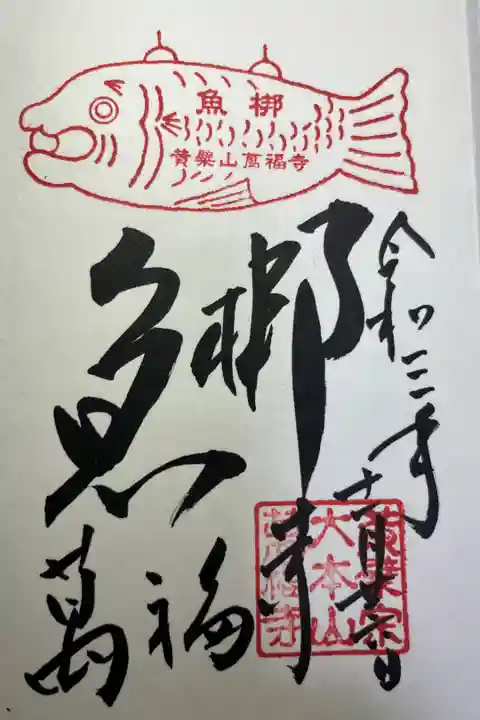 魚梆
黄檗山萬福寺
令和三年
魚梆
萬福寺
黄檗宗
大本山
萬福寺